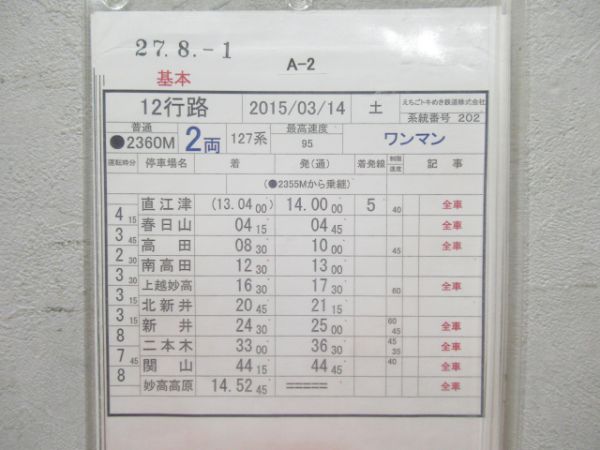 27.8.-1
A-2
基本
12行路 2015/03/14 土 えちごトキめき鉄道株式会社 系統番号 202
普通 ●2360M 2両 127系 最高速度 95 ワンマン
運転時分 停車場名 着 発(通) 着発線 制限速度 記事
(●2355Mから乗継)
直江津 (13.04 00) 14.00 00 5 40 全車
4 15
春日山 04 15 04 45 全車
3 45
高田 08 30 10 00 45 全車
2 30
南高田 12 30 13 00 全車
3 30
上越妙高 16 30 17 30 60 全車
3 15
北新井 20 45 21 15 全車
3 15
新井 24 30 25 00 60 45 全車
8
二本木 33 00 36 30 45 35 全車
7 45
関山 44 15 44 45 40 全車
8
妙高高原 14.52 45 =====